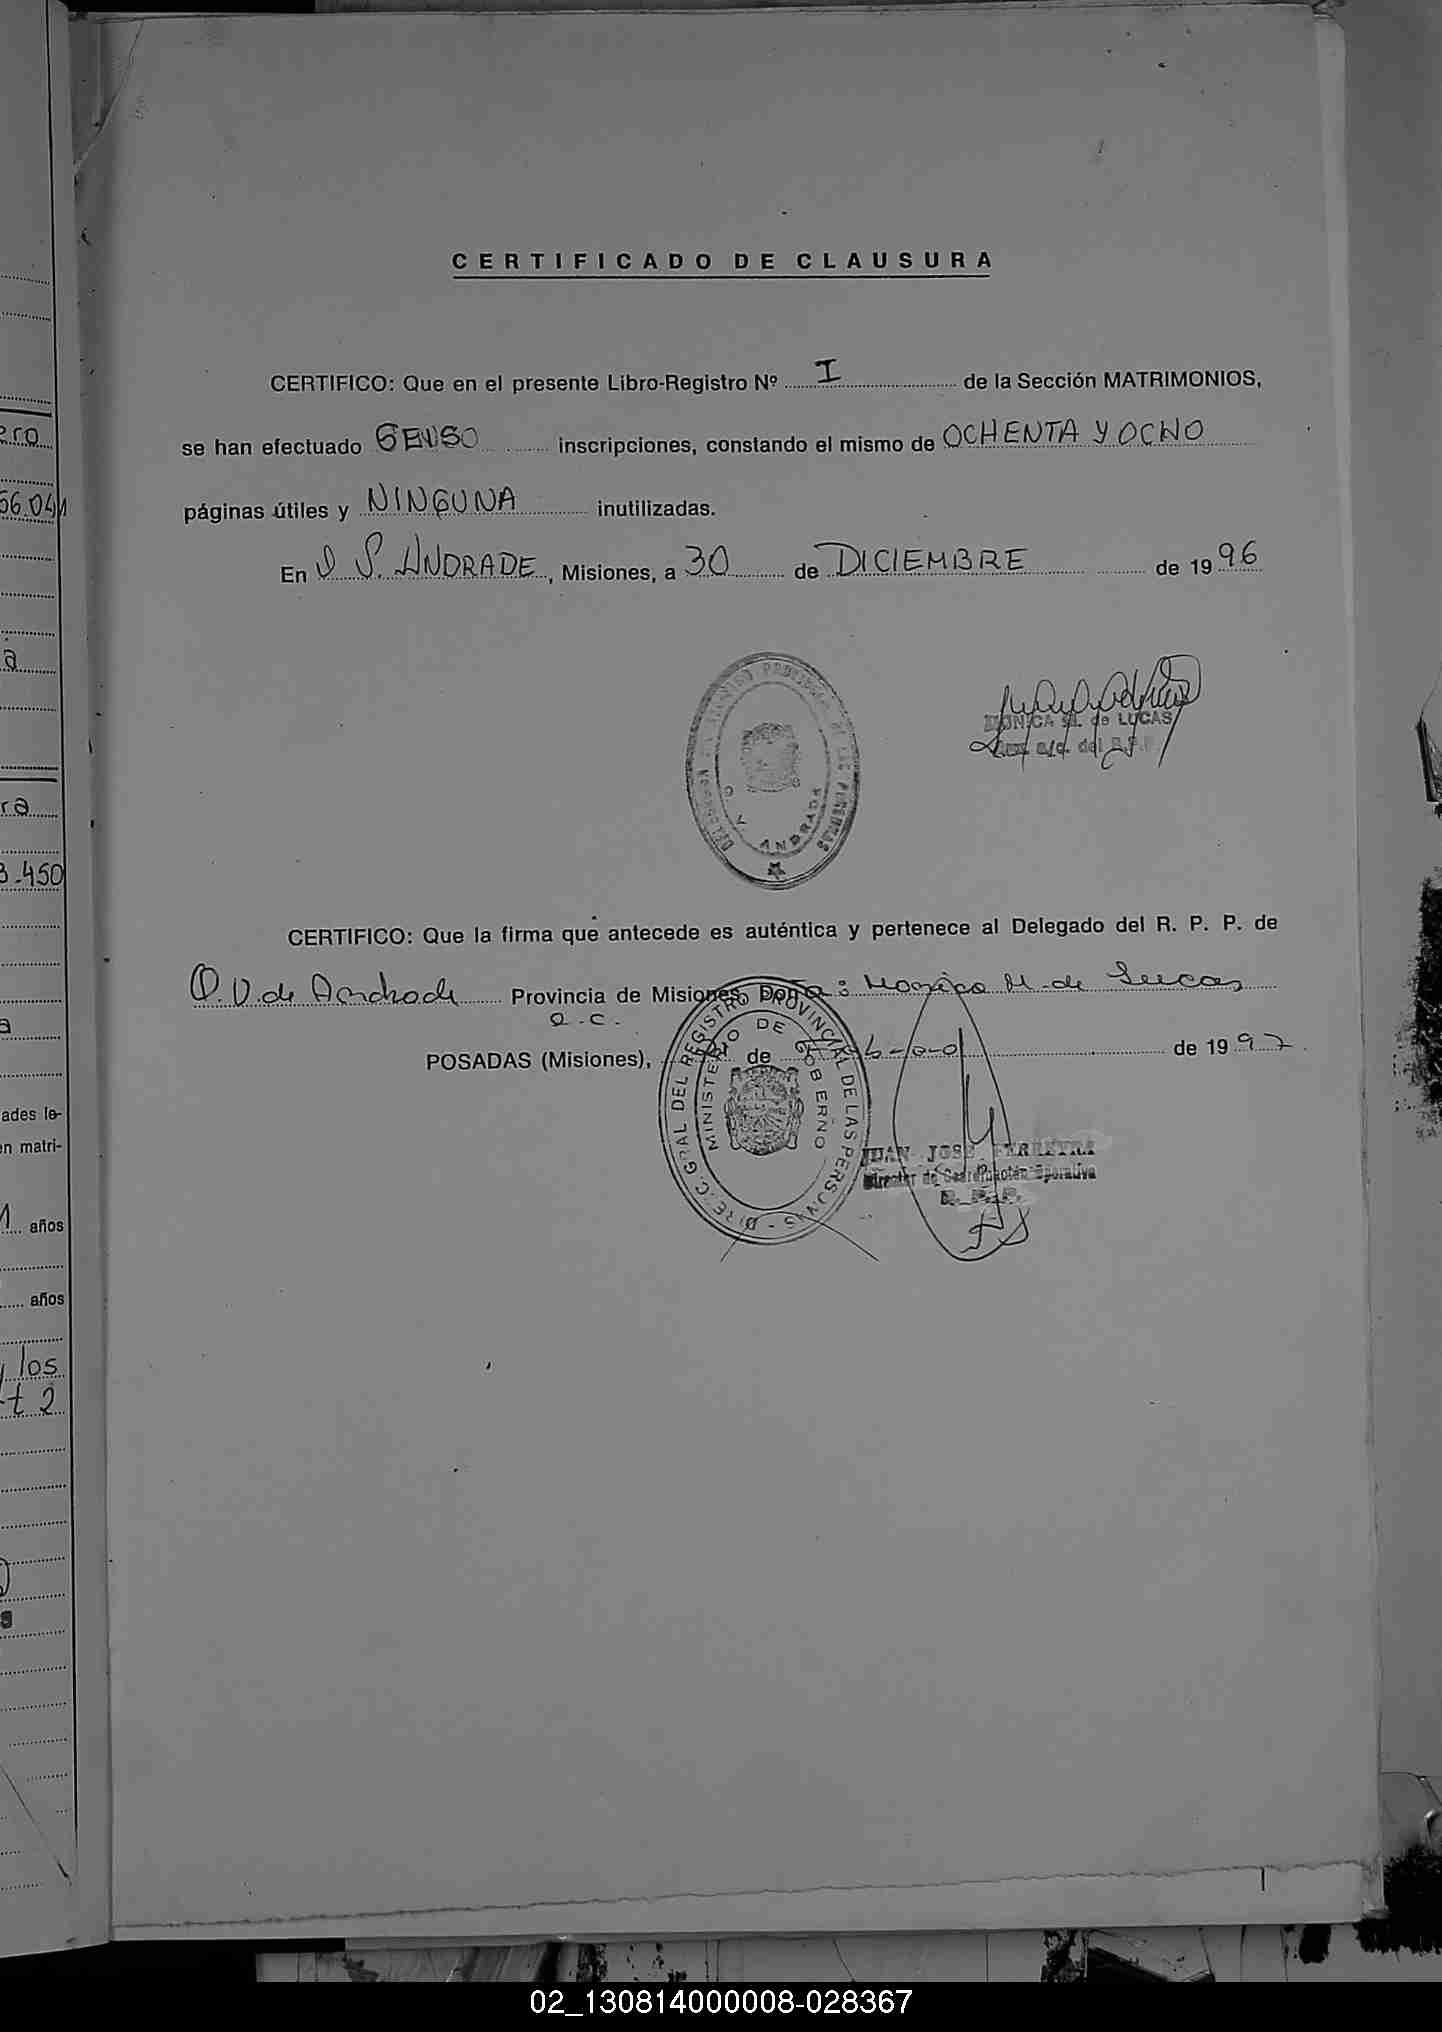 CERTIFICADO DE CLAUSURA
CERTIFICO: Que en el presente Libro-Registro Nº I de la Sección MATRIMONIOS,
se han efectuado inscripciones, constando el mismo de OCHENTA Y OCHO
páginas útiles y NINGUNA inutilizadas.
En ANDRADE, Misiones, a 30 de DICIEMBRE de 1996
O. V. ANDRADE
MONICA M. de LUCAS
a/c. del R.P.P.
CERTIFICO: Que la firma que antecede es auténtica y pertenece al Delegado del R. P. P. de
O.V. de Andrade Provincia de Misiones, Don a: Monica M. de Lucas
a.c.
POSADAS (Misiones), de Febrero de 1997
DIREC. GRAL DEL REGISTRO PROVINCIAL DE LAS PERSONAS
MINISTERIO DE GOBIERNO
JUAN JOSE FERREYRA
Director de Coordinación Operativa
R. P. P.
ero
56.041
a
ra
3.450
a
ades le-
en matri-
años
años
y los
t 2
02_130814000008-028367